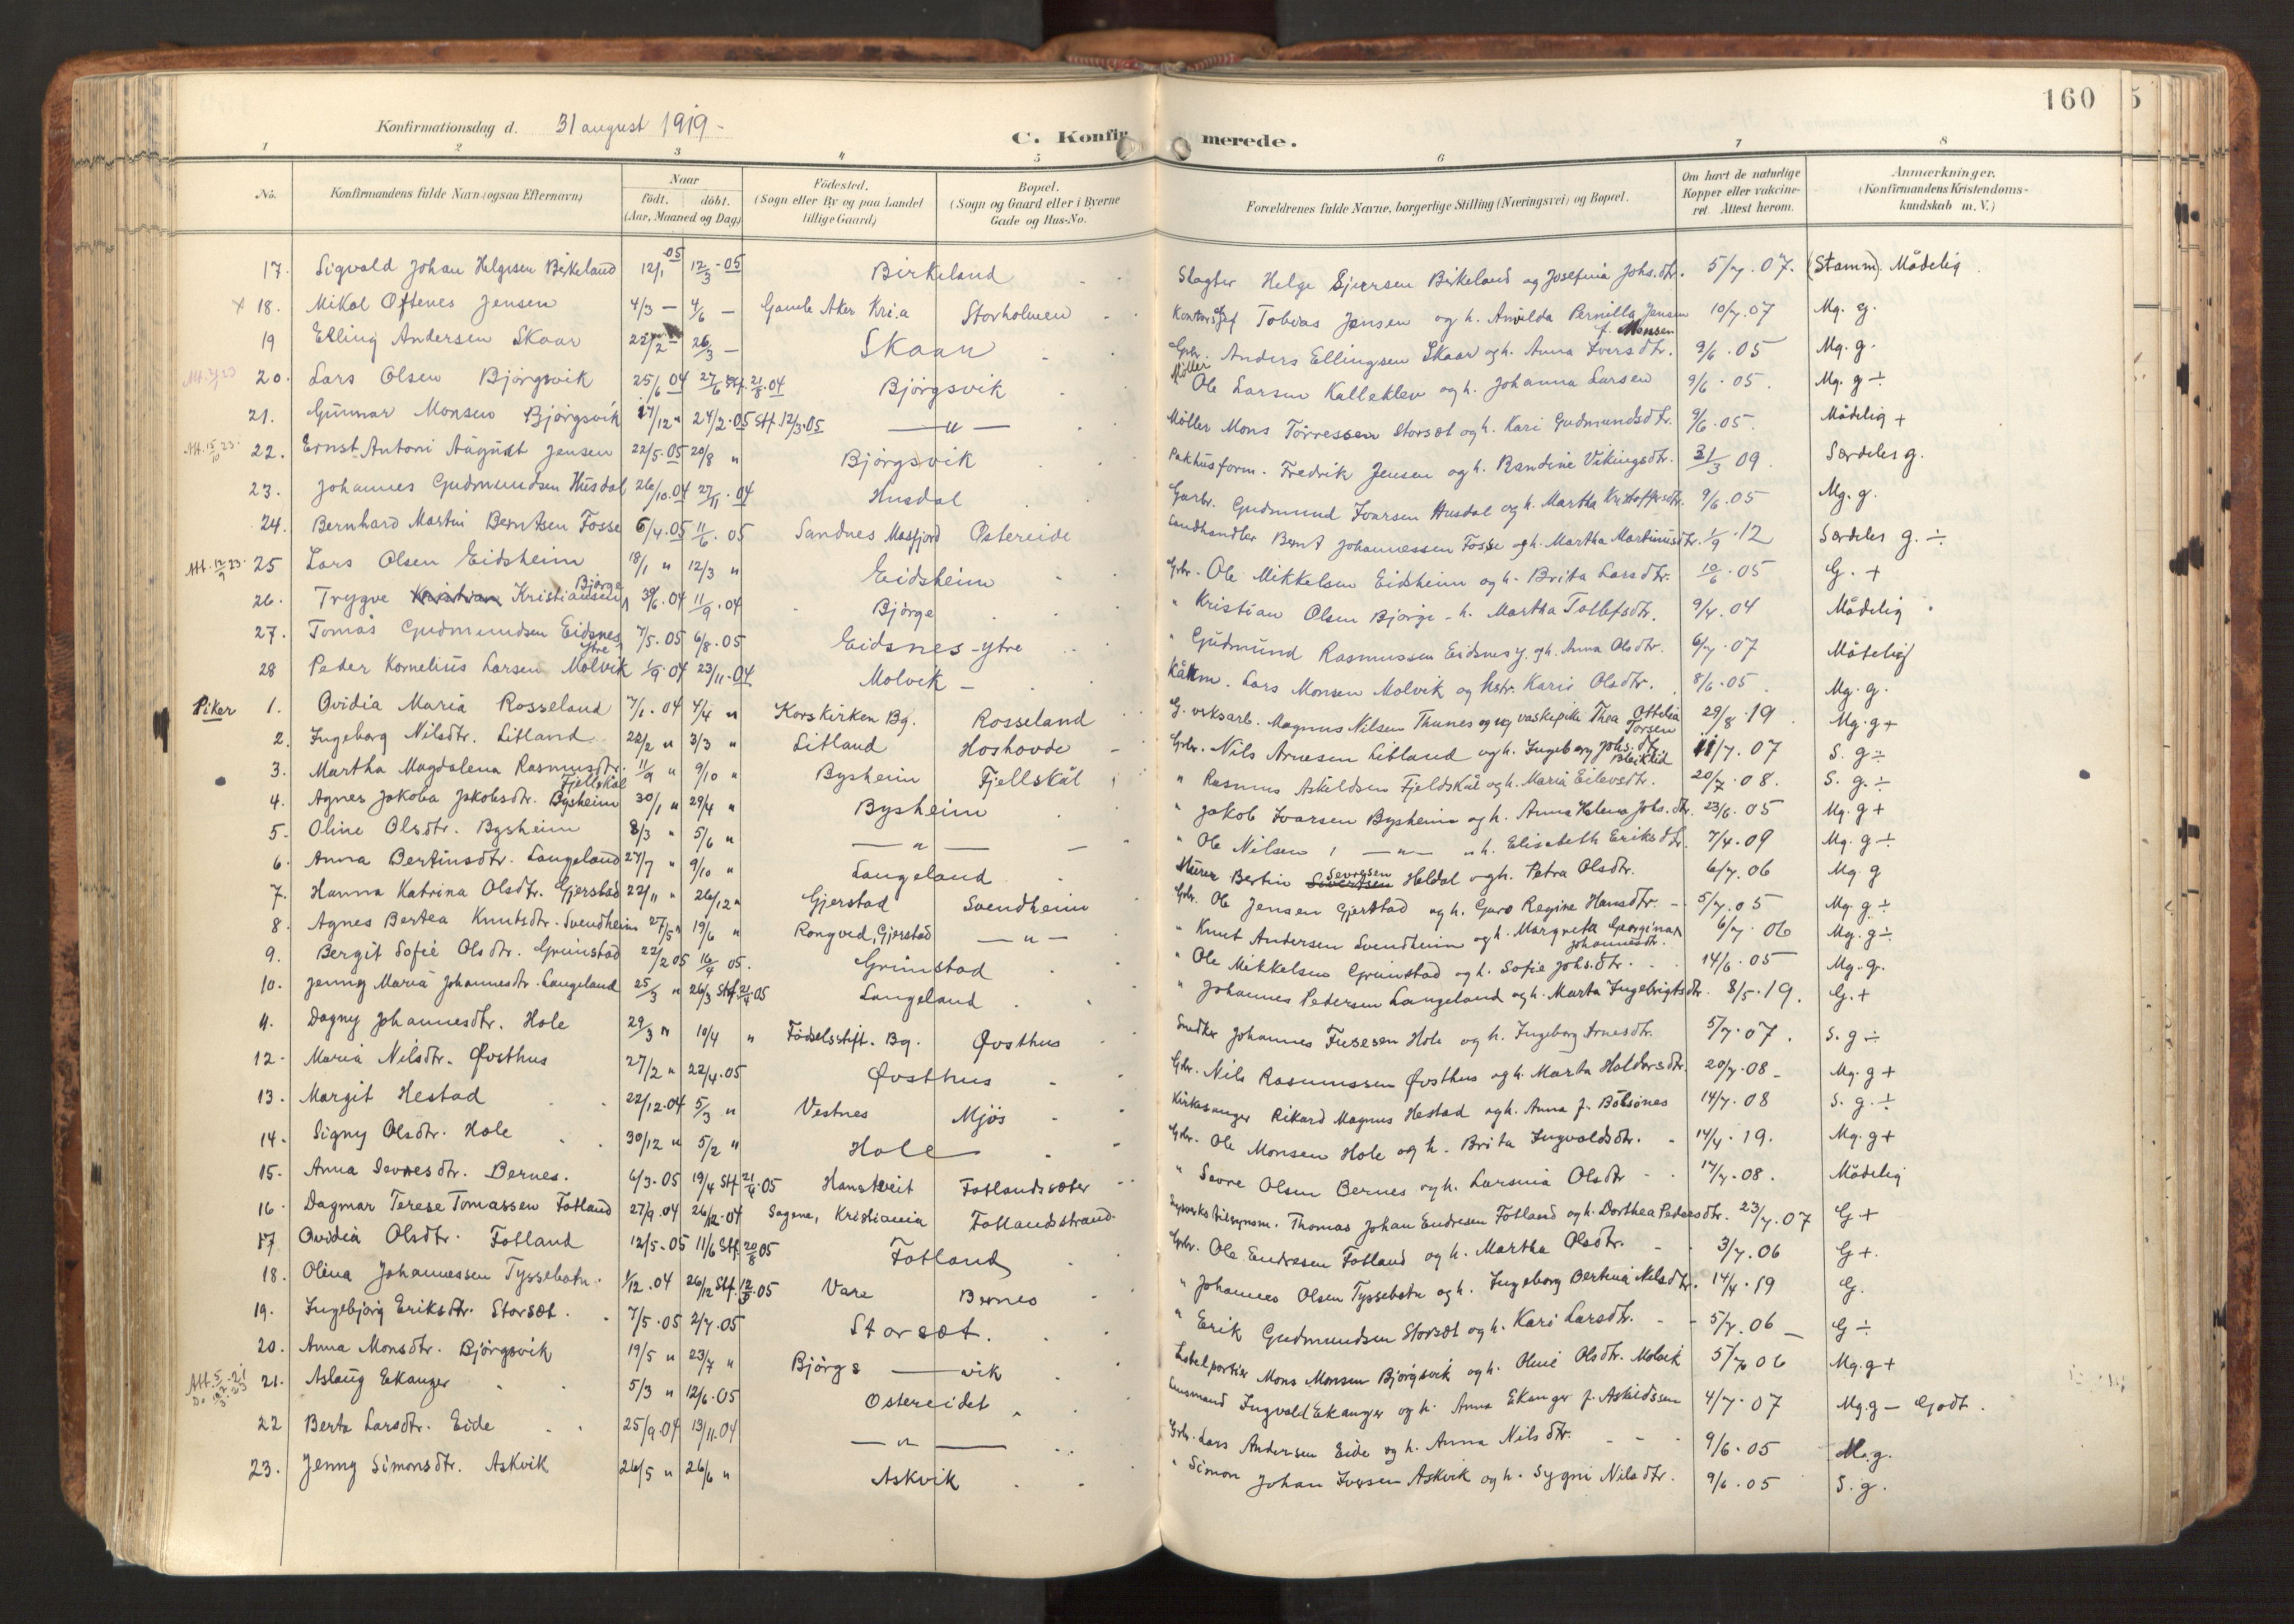 160
5
Konfirmationsdag d. 31 august 1919 -
C. Konfirmerede.
1 2 3 4 5 6 7 8
No. Konfirmandens fulde Navn (ogsaa Efternavn) Naar födt. döbt. (Aar, Maaned og Dag) Födested. (Sogn eller By og paa Landet tillige Gaard) Bopæl. (Sogn og Gaard eller i Byerne Gade og Hus-No. Forældrenes fulde Navne, borgerlige Stilling (Næringsvei) og Bopæl. Om havt de naturlige Kopper eller vakcineret. Attest herom. Anmærkninger. (Konfirmandens Kristendomskundskab m. V.)
17. Sigvald Johan Helgesen Birkeland 12/1 05 12/3 - 05 Birkeland Slagter Helge Sjursen Birkeland og Josefina Johs.dtr. 5/7. 07. (Stamm). Mådelig
x 18. Mikal Oftenes Jensen 4/3 — 4/6 — Gamle Aker Kri.a Storholmen Kontorchef Tobias Jensen og h. Anvilda Pernilla Jensen f. Monsen 10/7. 07 Mg. g.
19 Elling Andersen Skaar 22/2 — 26/3 — Skaar Gbr. Anders Ellingsen Skaar og h. Anna Iversdtr. 9/6. 05 Mg. g.
20. Lars Olsen Björgsvik 25/6 04 27/6 Stf. 21/8. 04 Björgsvik Möller Ole Larsen Kalleklev og h. Johanna Larsen 9/6. 05. Mg. g ÷
21. Gunnar Monsen Björgsvik 17/12 " 24/2. 05 Stf. 12/3. 05 — " — Möller Mons Torressen Storset og h. Kari Gudmundsdtr. 9/6. 05. Mådelig +
Att. 15/10 23. 22. Ernst Antoni August Jensen 22/5. 05 20/8 " Björgsvik Pakhusform. Fredrik Jensen og h. Randine Vikingsdtr. 31/3 09. Særdeles g.
23. Johannes Gudmundsen Husdal 26/10. 04 27/11. 04 Husdal Garbr. Gudmund Ivarsen Husdal og h. Martha Kristoffersdtr. 9/6. 05 Mg. g.
24. Bernhard Martin Berntsen Fosse 6/4. 05 11/6. 05 Sandnes Masfjord Ostereide Landhandler Bernt Johannessen Fosse og h. Martha Martinusdtr. 1/9. 12 Særdeles g. ÷
Att. 12/9 23. 25 Lars Olsen Eidsheim 18/1 " 12/3 " Eidsheim Gbr. Ole Mikkelsen Eidsheim og h. Brita Larsdtr. 10/6. 05 G. +
26. Trygve Kristiansen Björge 30/6. 04 11/9. 04 Björge " Kristian Olsen Björge - h. Martha Tollefsdtr. 9/4. 04 Mådelig
27. Tomas Gudmundsen Eidsnes ytre 7/5. 05 6/8. 05 Eidsnes - ytre " Gudmund Rasmussen Eidsnes y. og h. Anna Olsdtr. 6/7. 07 Mådelig
28 Peder Kornelius Larsen Molvik 1/9. 04 23/11. 04 Molvik - Lars Monsen Molvik og hstr. Kari Olsdtr. 8/6. 05. Mg. g.
Piker 1. Ovidia Maria Rosseland 7/1. 04 4/4 " Korskirken Bg. Rosseland G. verksarb. Magnus Nilsen Thunes og ug vaskepike Thea Ottelia Torsen 29/8. 19. Mg. g +
2. Ingeborg Nilsdtr. Litland 22/2 " 3/3 " Litland Hoshovde Gbr. Nils Arnesen Litland og h. Ingeborg Johs. dtr. Bleiklid 11/7. 07 S. g ÷
3. Martha Magdalena Rasmusdtr. Fjellskål 11/9 " 9/10 " Bysheim Fjellskål " Rasmus Askildsen Fjeldskål og h. Maria Eilevsdtr. 20/7. 08. S. g. ÷
4. Agnes Jakoba Jakobsdtr. Bysheim 30/1 " 29/4 " Bysheim " Jakob Ivarsen Bysheim og h. Anna Helena Johs. dtr. 23/6. 05 Mg. g +
5. Oline Olsdtr. Bysheim 8/3 " 5/6 " — " — " Ole Nilsen — " — " h. Elisabeth Eriksdtr. 7/4. 09 Mg. g ÷
6. Anna Bertinsdtr. Langeland 27/7 " 9/10 " Langeland Murer Bertin Sevrgsen Heldal og h. Petra Olsdtr. 6/7. 06 Mg. g
7. Hanna Katrina Olsdtr. Gjerstad 22/11 " 26/12 " Gjerstad Svendheim Gbr. Ole Jensen Gjerstad og h. Guro Regine Hansdtr. 5/7. 05 Mg. g ÷
8. Agnes Bertea Knutsdtr. Svendheim 27/5 " 19/6 " Rongved, Gjerstad — " — " Knut Andersen Svendheim og h. Margreta Georgina Johannesdtr. 6/7. 06 Mg. g ÷
9. Bergit Sofie Olsdtr. Grimstad 22/2 05 16/4 05. Grimstad " Ole Mikkelsen Grimstad og h. Sofie Johs.dtr. 14/6. 05 Mg. g.
10. Jenny Maria Johannesdtr. Langeland 25/3 " 26/3 Stf. 21/4 05 Langeland " Johannes Pedersen Langeland og h. Marta Ingebrigtsdtr. 8/5. 19. G. +
11. Dagny Johannesdtr. Hole 29/3 " 10/4 " Födselsstift. Bg. Øvsthus Snedker Johannes Fusesen Hole og h. Ingeborg Arnesdtr. 5/7. 07. S. g ÷
12. Maria Nilsdtr. Øvsthus 27/2 " 22/4. 05 Øvsthus Gbr. Nils Rasmussen Øvsthus og h. Marta Haldorsdtr. 20/7. 08 - Mg. g +
13. Margit Hestad 22/12. 04 5/3 " Vestnes Mjös Kirkesanger Rikard Magnus Hestad og h. Anna f. Bölsönes 14/7. 08 S. g. ÷
14. Signy Olsdtr. Hole 30/12 " 5/2 " Hole Gbr. Ole Monsen Hole og h. Brita Ingvaldsdtr. 14/4. 19. Mg. g +
15. Anna Sevresdtr. Bernes. 6/3. 05 19/4 Stf. 21/4. 05 Hanstveit Fotlandssæter " Sevre Olsen Bernes og h. Larsina Olsdtr 17/7. 08. Mådelig
16. Dagmar Terese Tomassen Fotland 27/9. 04 26/12. 04 Sagene, Kristiania Fotlandsstrand Thomas Johan Endresen Fotland og h. Dorthea Pedersdtr. 23/7. 07 G +
17 Ovidia Olsdtr. Fotland 12/5. 05 11/6 Stf. 20/8 05 Fotland Gbr. Ole Endresen Fotland og h. Martha Olsdtr. 3/7. 06 G +.
18. Olina Johannessen Tyssebotn. 1/12. 04 26/12 Stf. 12/3. 05 Vare Bernes " Johannes Olsen Tyssebotn og h. Ingeborg Bertina Nilsdtr. 14/4. 19 G.
19. Ingebjörg Eriksdtr. Storset. 7/5. 05 2/7. 05 Storset. " Erik Gudmundsen Storset og h. Kari Larsdtr. 5/7. 06 G ÷
20. Anna Monsdtr. Björgsvik 19/5 " 23/7 " Björgs — vik Hotelportier Mons Monsen Björgsvik og h. Oline Olsdtr. Molvik 5/7 06 Mg. g +
21. Aslaug Ekanger 5/3 " 12/6. 05 Ostereidet Lensmand Ingvald Ekanger og h. Anna Ekanger f. Askildssen 4/7. 07 Mg. g — Godt.
22 Berta Larsdtr. Eide 25/9. 04 13/11. 04 — " — Gbr. Lars Andersen Eide og h. Anna Nilsdtr. 9/6. 05 M. g.
23. Jenny Simonsdtr. Askvik 26/5 " 26/6 " Askvik " Simon Johan Iversen Askvik og h. Sygni Nilsdtr. 9/6. 05 S. g.